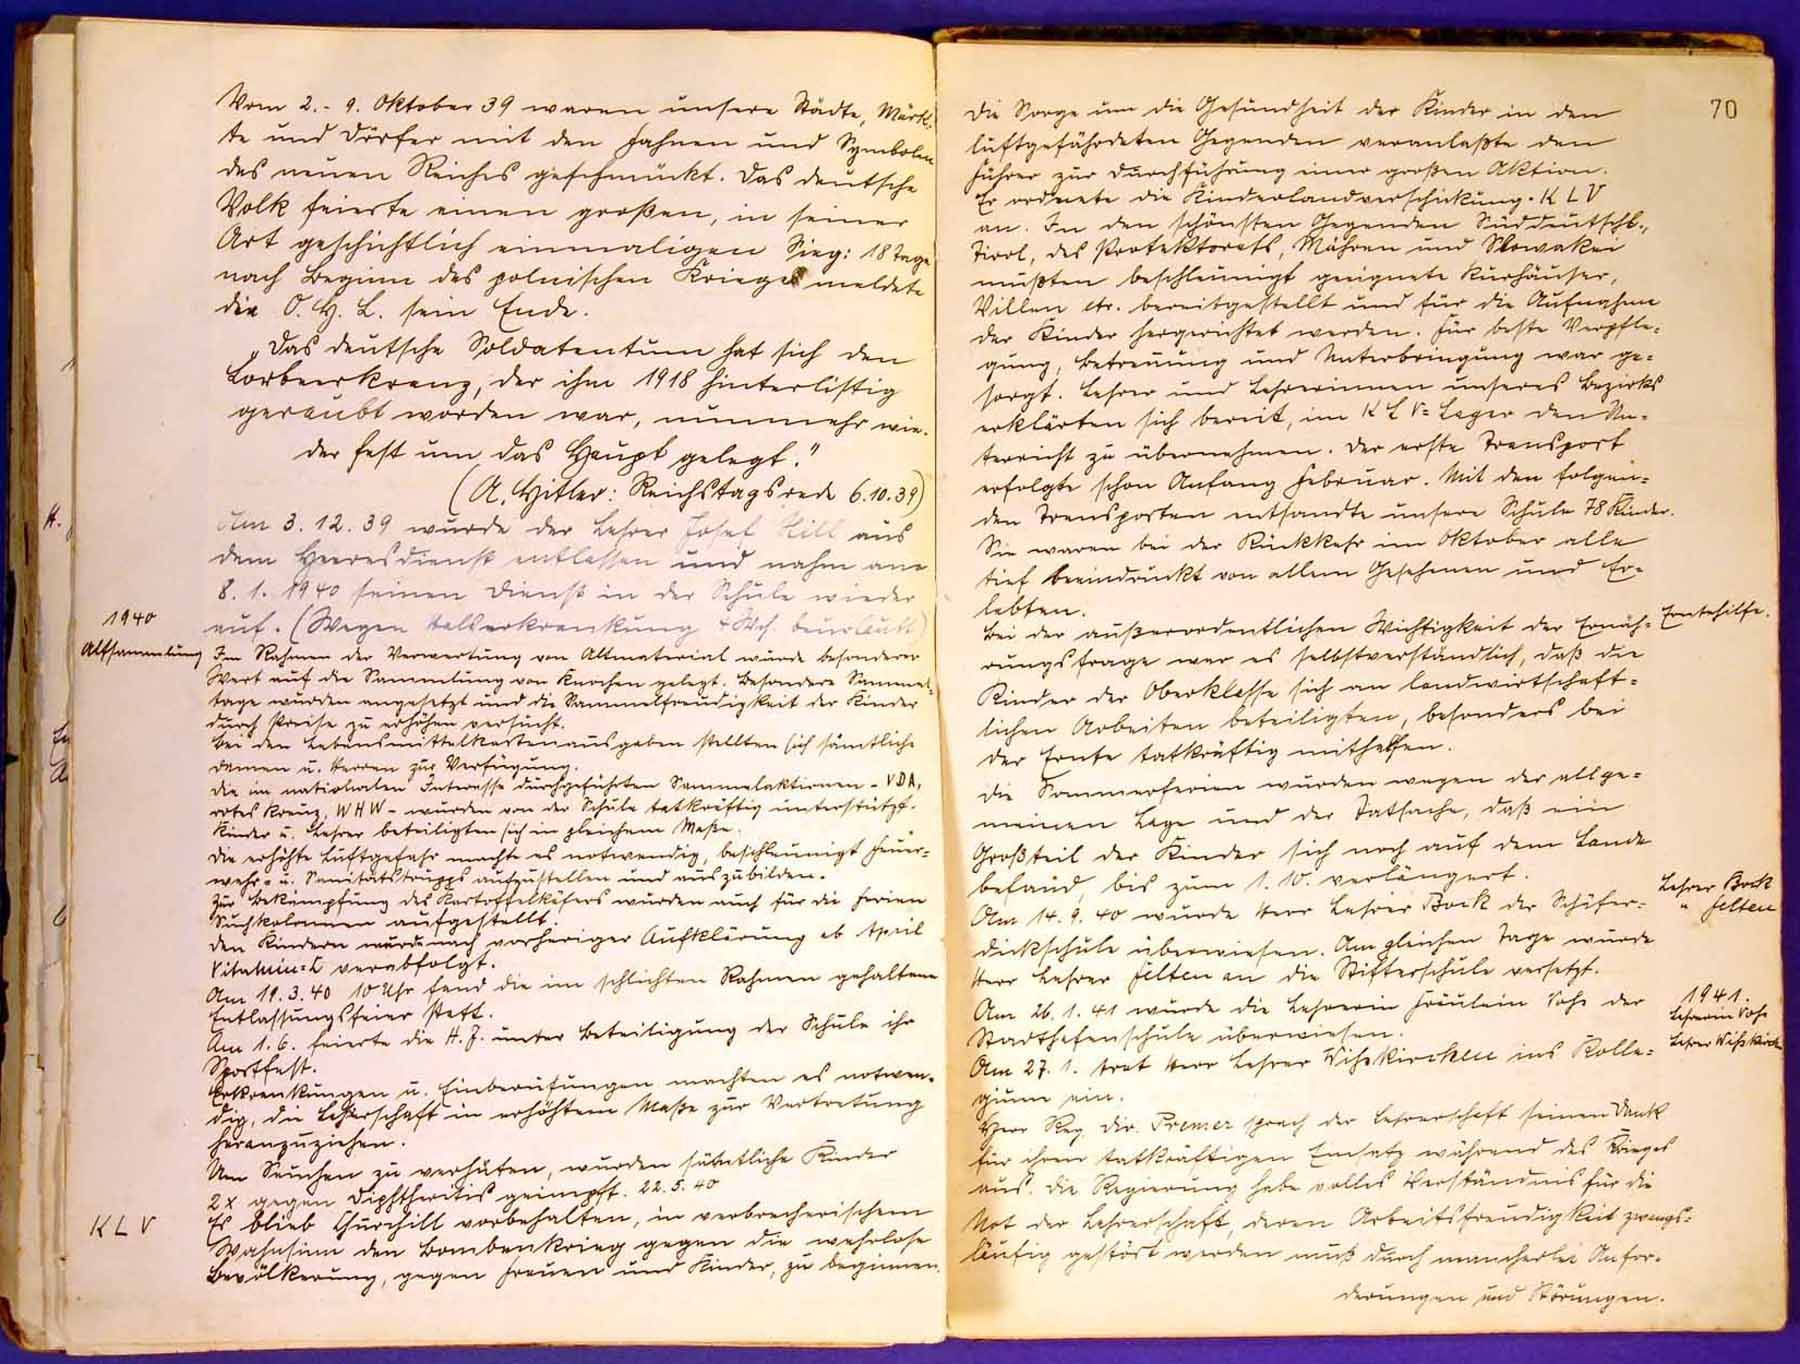 Vom 2.- 9. Oktober 39 waren unsere Städte, Märk-
te und Dörfer mit den Fahnen und Symbolen
des neuen Reiches geschmückt. Das deutsche
Volk feierte einen großen, in seiner
Art geschichtlich einmaligen Sieg: 18 Tage
nach Beginn des polnischen Krieges meldete
die O. H. L. sein Ende.
„Das deutsche Soldatentum hat sich den
Lorbeerkranz, der ihm 1918 hinterlistig
geraubt worden war, nunmehr wie-
der fest um das Haupt gelegt."
(A. Hitler: Reichstagsrede 6.10.39)
Am 3. 12. 39 wurde der Lehrer Josef Hill aus
dem Heeresdienst entlassen und nahm am
8. 1. 1940 seinen Dienst in der Schule wieder
auf. (Wegen Halserkrankung 4 Wch beurlaubt)
1940
Altsammlung
Im Rahmen der Verwertung von Altmaterial wurde besonderer
Wert auf die Sammlung von Knochen gelegt. Besondere Sammel-
tage wurden angesetzt und die Sammelfreudigkeit der Kinder
durch Preise zu erhöhen versucht.
Bei den Lebensmittelkartenausgaben stellten sich sämtliche
Damen u. Herren zur Verfügung.
Die im nationalen Interesse durchgeführten Sammelaktionen - VDA,
rotes Kreuz, WHW - wurden von der Schule tatkräftig unterstützt.
Kinder u. Lehrer beteiligten sich in gleichem Maße.
Die erhöhte Luftgefahr machte es notwendig, beschleunigt Feuer-
wehr- u. Sanitätstrupps aufzustellen und auszubilden.
Zur Bekämpfung des Kartoffelkäfers wurden auch für die Ferien
Suchkolonnen aufgestellt.
Den Kindern wurde nach vorheriger Aufklärung ab April
Vitamin-C verabfolgt.
Am 19. 3. 40 10 Uhr fand die im schlichten Rahmen gehaltene
Entlassungsfeier statt.
Am 1. 6. feierte die H. J. unter Beteiligung der Schule ihr
Sportfest.
Erkrankungen u. Einberufungen machten es notwen-
dig, die Lehrerschaft in erhöhtem Maße zur Vertretung
heranzuziehen.
Um Seuchen zu verhüten, wurden sämtliche Kinder
2x gegen Diphtheritis geimpft. 22. 5. 40
KLV
Es blieb Churchill vorbehalten, in verbrecherischem
Wahnsinn den Bombenkrieg gegen die wehrlose
Bevölkerung, gegen Frauen und Kinder, zu beginnen.
70
Die Sorge um die Gesundheit der Kinder in den
luftgefährdeten Gegenden veranlaßte den
Führer zur Durchführung einer großen Aktion.
Er ordnete die Kinderlandverschickung - KLV
an. In den schönsten Gegenden Süddeutschl.,
Tirol, des Protektorats, Mähren und Slowakei
mußten beschleunigt geeignete Kurhäuser,
Villen etc. bereitgestellt und für die Aufnahme
der Kinder hergerichtet werden. Für beste Verpfle-
gung, Betreuung und Unterbringung war ge-
sorgt. Lehrer und Lehrerinnen unseres Bezirks
erklärten sich bereit, im KLV-Lager den Un-
terricht zu übernehmen. Der erste Transport
erfolgte schon Anfang Februar. Mit den folgen-
den Transporten entsandte unsere Schule 78 Kinder.
Sie waren bei der Rückkehr im Oktober alle
tief beeindruckt von allem Gesehenen und Er-
lebten.
Bei der außerordentlichen Wichtigkeit der Ernäh-
Erntehilfe.
rungsfrage war es selbstverständlich, daß die
Kinder der Oberklasse sich an landwirtschaft-
lichen Arbeiten beteiligten, besonders bei
der Ernte tatkräftig mithelfen.
Die Sommerferien wurden wegen der allge-
meinen Lage und der Tatsache, daß ein
Großteil der Kinder sich noch auf dem Lande
befand, bis zum 1. 10. verlängert.
Lehrer Bock
" Felten
Am 14. 9. 40 wurde Herr Lehrer Bock der Schäfer-
dickschule überwiesen. Am gleichen Tage wurde
Herr Lehrer Felten an die Stifterschule versetzt.
1941.
Lehrerin
Am 26. 1. 41 wurde die Lehrerin Fräulein der
Stadthafenschule überwiesen.
Lehrer Wißkirch
Am 27. 1. trat Herr Lehrer Wißkirchen ins Kolle-
gium ein.
Herr Reg. dir. Premer sprach der Lehrerschaft seinen Dank
für ihren tatkräftigen Einsatz während des Krieges
aus. Die Regierung habe volles Verständnis für die
Not der Lehrerschaft, deren Arbeitsfreudigkeit zwangs-
läufig gestört werden muß durch mancherlei Anfor-
derungen und Störungen.